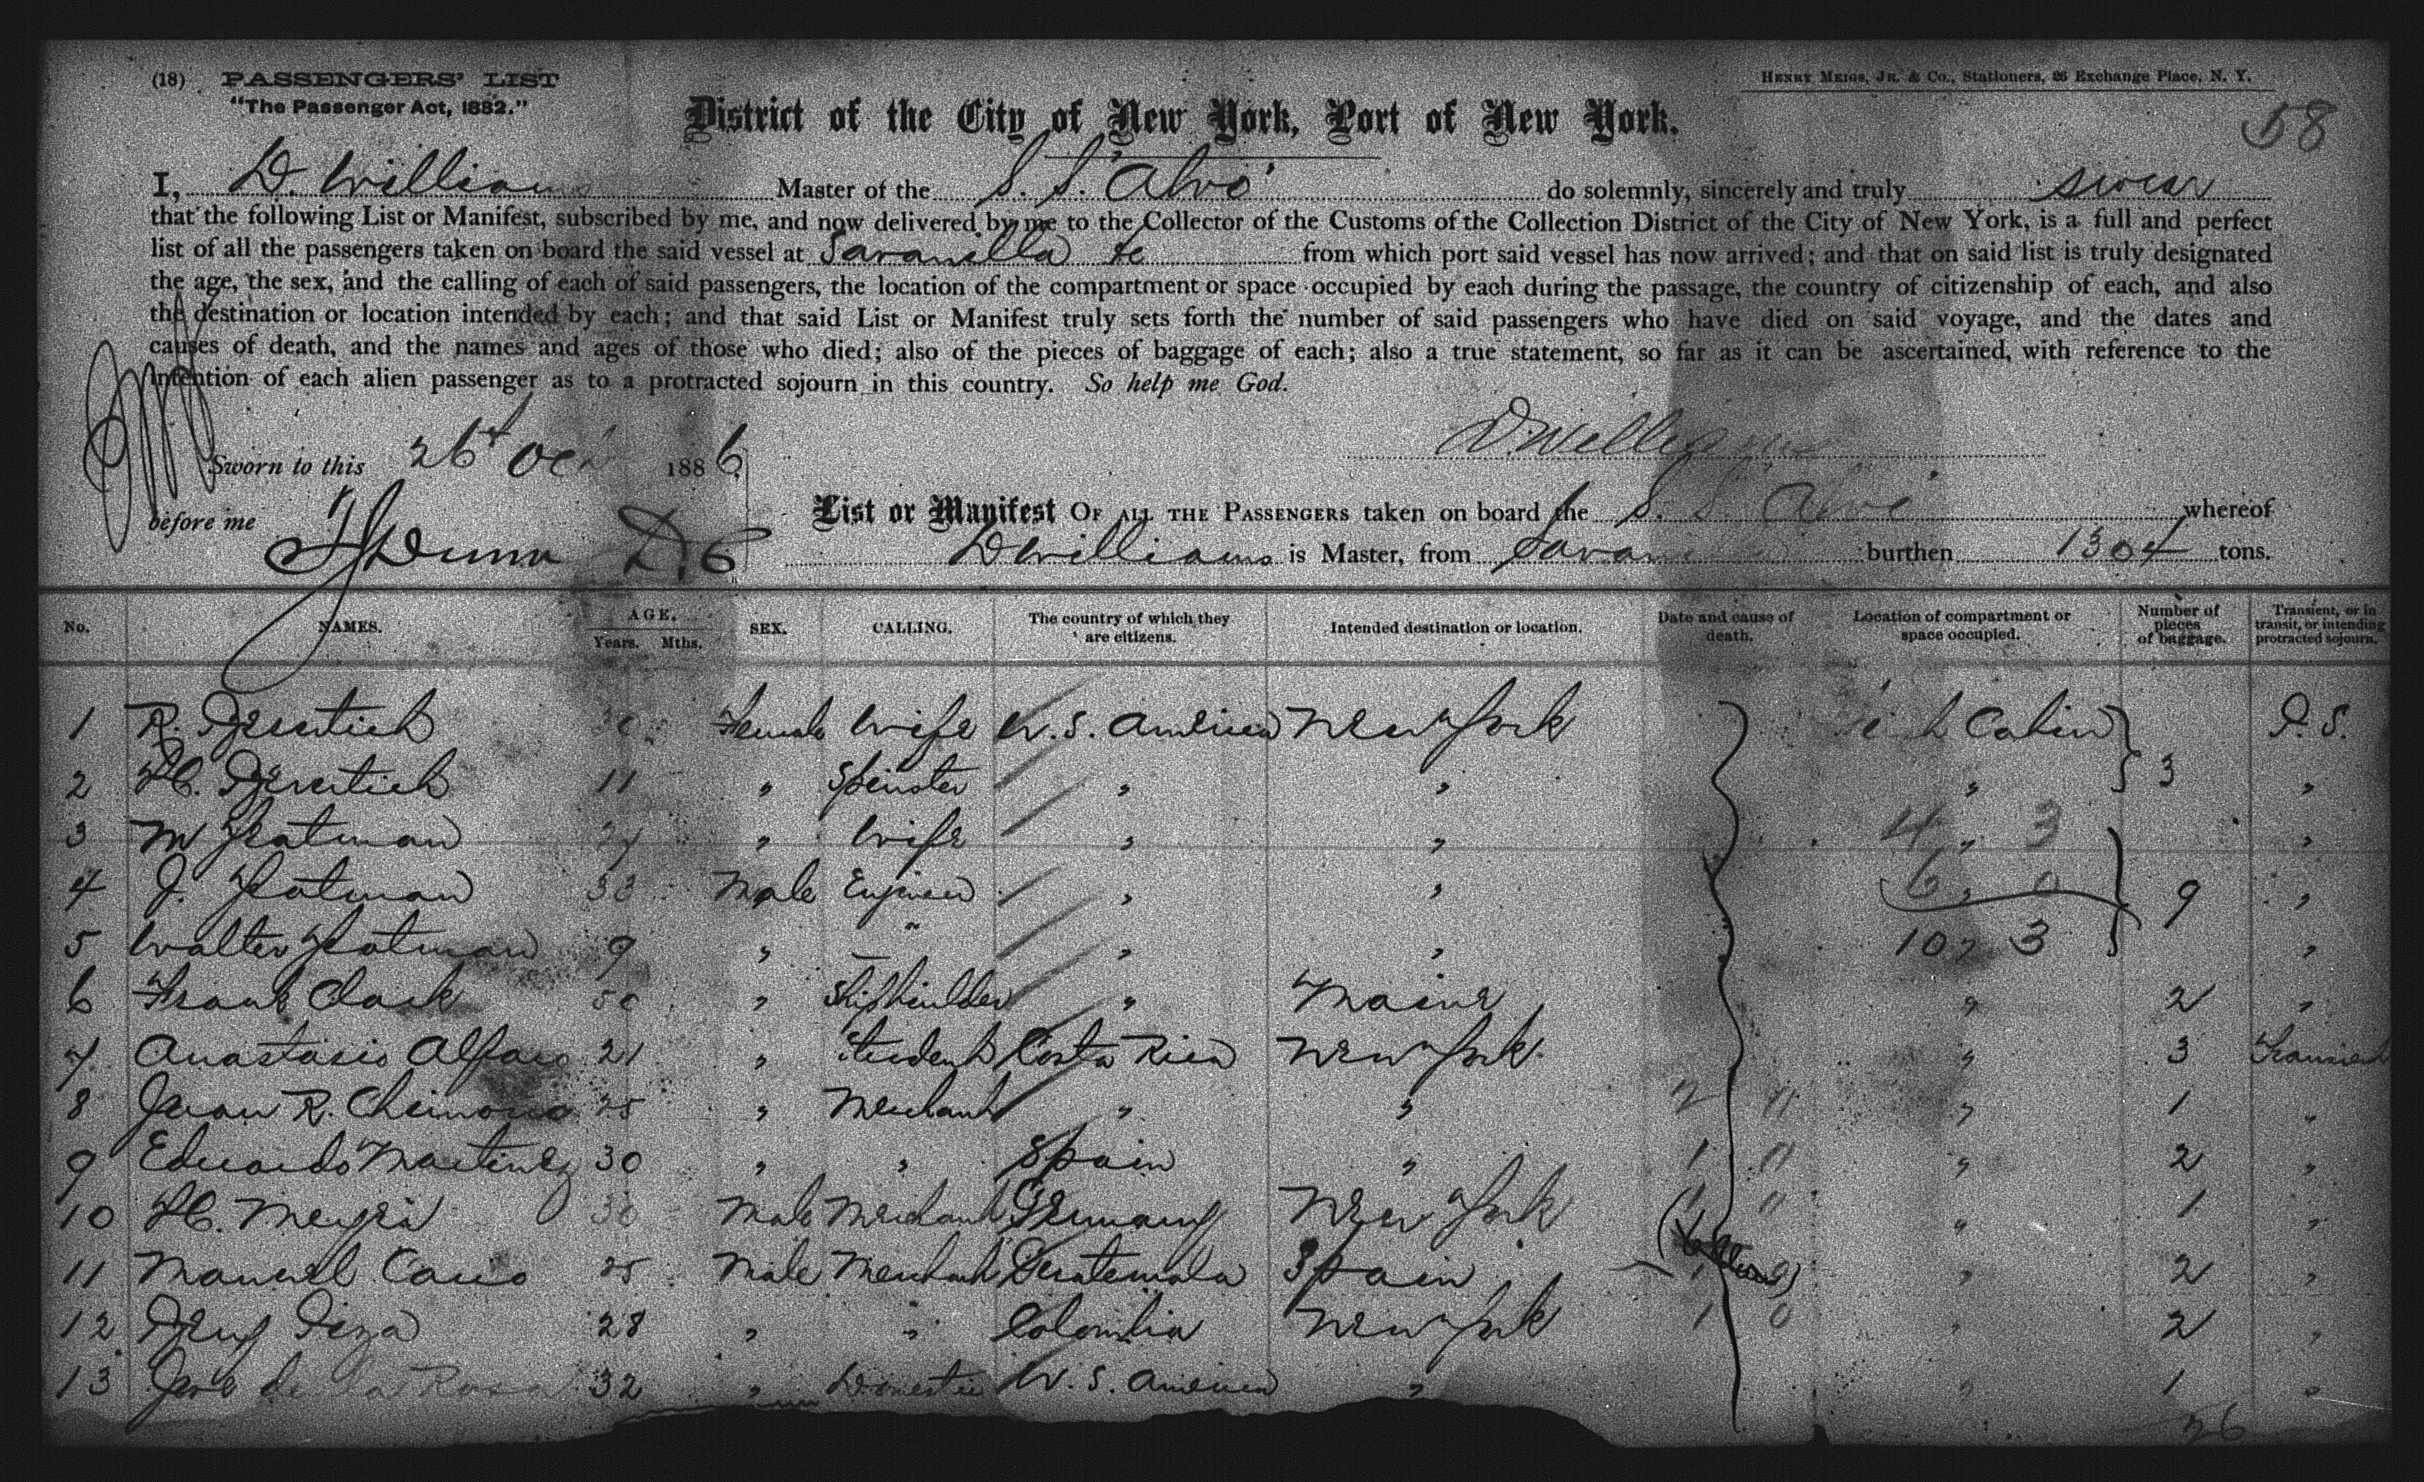 (18) PASSENGERS' LIST
"The Passenger Act, 1882."
HENRY MEIGS, JR. & Co., Stationers, 26 Exchange Place, N. Y.
58
District of the City of New York, Port of New York.
I, D. Williams Master of the S. S. "Alvo" do solemnly, sincerely and truly swear
that the following List or Manifest, subscribed by me, and now delivered by me to the Collector of the Customs of the Collection District of the City of New York, is a full and perfect
list of all the passengers taken on board the said vessel at Savanilla &c from which port said vessel has now arrived; and that on said list is truly designated
the age, the sex, and the calling of each of said passengers, the location of the compartment or space occupied by each during the passage, the country of citizenship of each, and also
the destination or location intended by each; and that said List or Manifest truly sets forth the number of said passengers who have died on said voyage, and the dates and
causes of death, and the names and ages of those who died; also of the pieces of baggage of each; also a true statement, so far as it can be ascertained, with reference to the
intention of each alien passenger as to a protracted sojourn in this country. So help me God.
D. Williams
Sworn to this 26t Oct 1886
before me Dunn D. C
List or Manifest OF ALL THE PASSENGERS taken on board the S. S. Alvo whereof
D Williams is Master, from Savanilla burthen 1304 tons.
No. NAMES. AGE. Years. Mths. SEX. CALLING. The country of which they are citizens. Intended destination or location. Date and cause of death. Location of compartment or space occupied. Number of pieces of baggage. Transient, or in transit, or intending protracted sojourn.
1 R. 30 Female Wife U. S. America New York Cabin P. S.
2 H. 11 " Spinster " " " 3 "
3 M Yeatman " Wife " " 4 " 3 "
4 J. Yeatman 33 Male Engineer " " 6 " 0 9 "
5 Walter Yeatman 9 " — " " 10 " 3 "
6 Frank Clark 50 " Shipbuilder " Maine " 2 "
7 Anastasio Alfaro 21 " Student Costa Rica New York " 3 Transient
8 Juan R. 25 " Merchant " " 2 11 " 1 "
9 Eduardo Martinez 30 " " Spain " 1 11 " 2 "
10 H. 30 Male Merchant Germany New York 1 11 " 1 "
11 Manuel 25 Male Merchant Guatemala Spain " 2 "
12 28 " " Colombia New York 1 0 " 2 "
13 Jose de la Rosa 32 " Domestic U. S. America " " 1 "
26